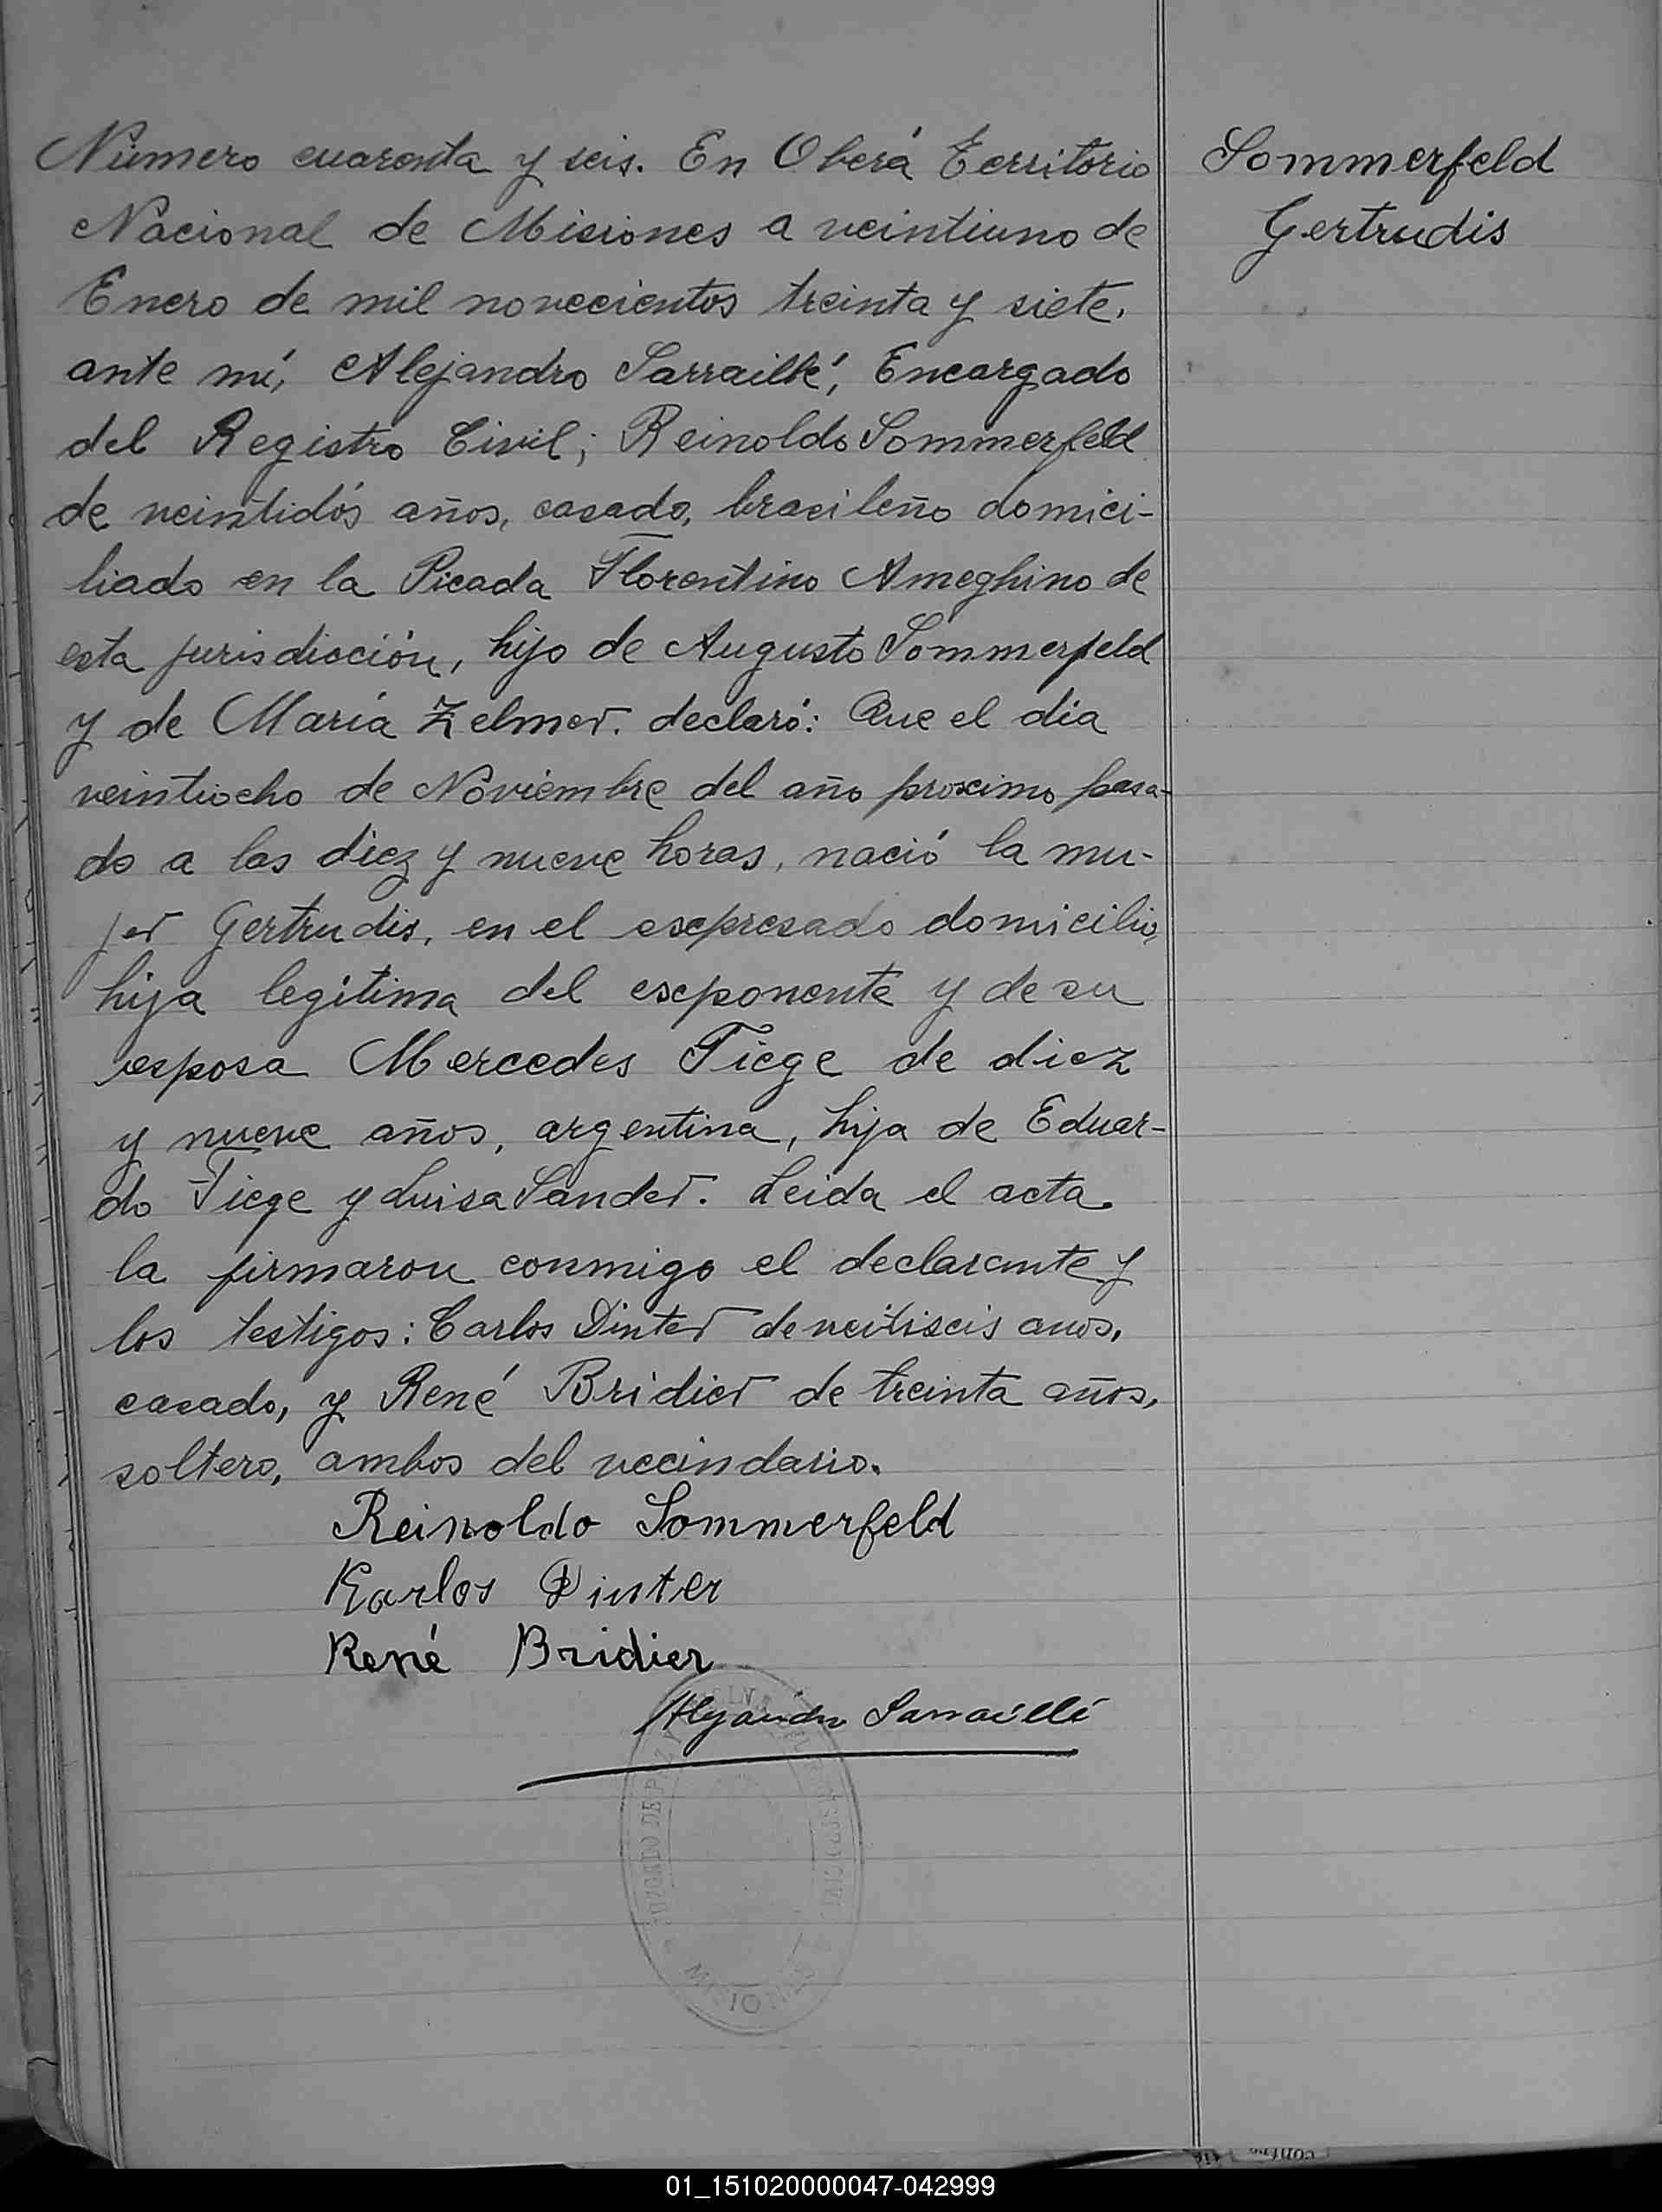 Número cuarenta y seis. En Oberá Territorio
Nacional de Misiones a veintiuno de
Enero de mil novecientos treinta y siete,
ante mí, Alejandro Sarraillé, Encargado
del Registro Civil; Reinoldo Sommerfeld
de veintidós años, casado, brasileño domici-
liado en la Picada Florentino Ameghino de
esta jurisdicción, hijo de Augusto Sommerfeld
y de María Zelmer. declaró: Que el día
veintiocho de Noviembre del año proximo pasa-
do a las diez y nueve horas, nació la mu-
jer Gertrudis, en el expresado domicilio,
hija legítima del exponente y de su
esposa Mercedes Fiege de diez
y nueve años, argentina, hija de Eduar-
do Fiege y Luisa Sander. Leida el acta
la firmaron conmigo el declarante y
los testigos: Carlos Dinter de veitiseis anos,
casado, y René Bridier de treinta años,
soltero, ambos del vecindario.
Reinoldo Sommerfeld
Karlos Dinter
René Bridier
Alejandro Sarraillé
JUZGADO DE PAZ Y
MISIONES
Sommerfeld
Gertrudis
01_151020000047-042999